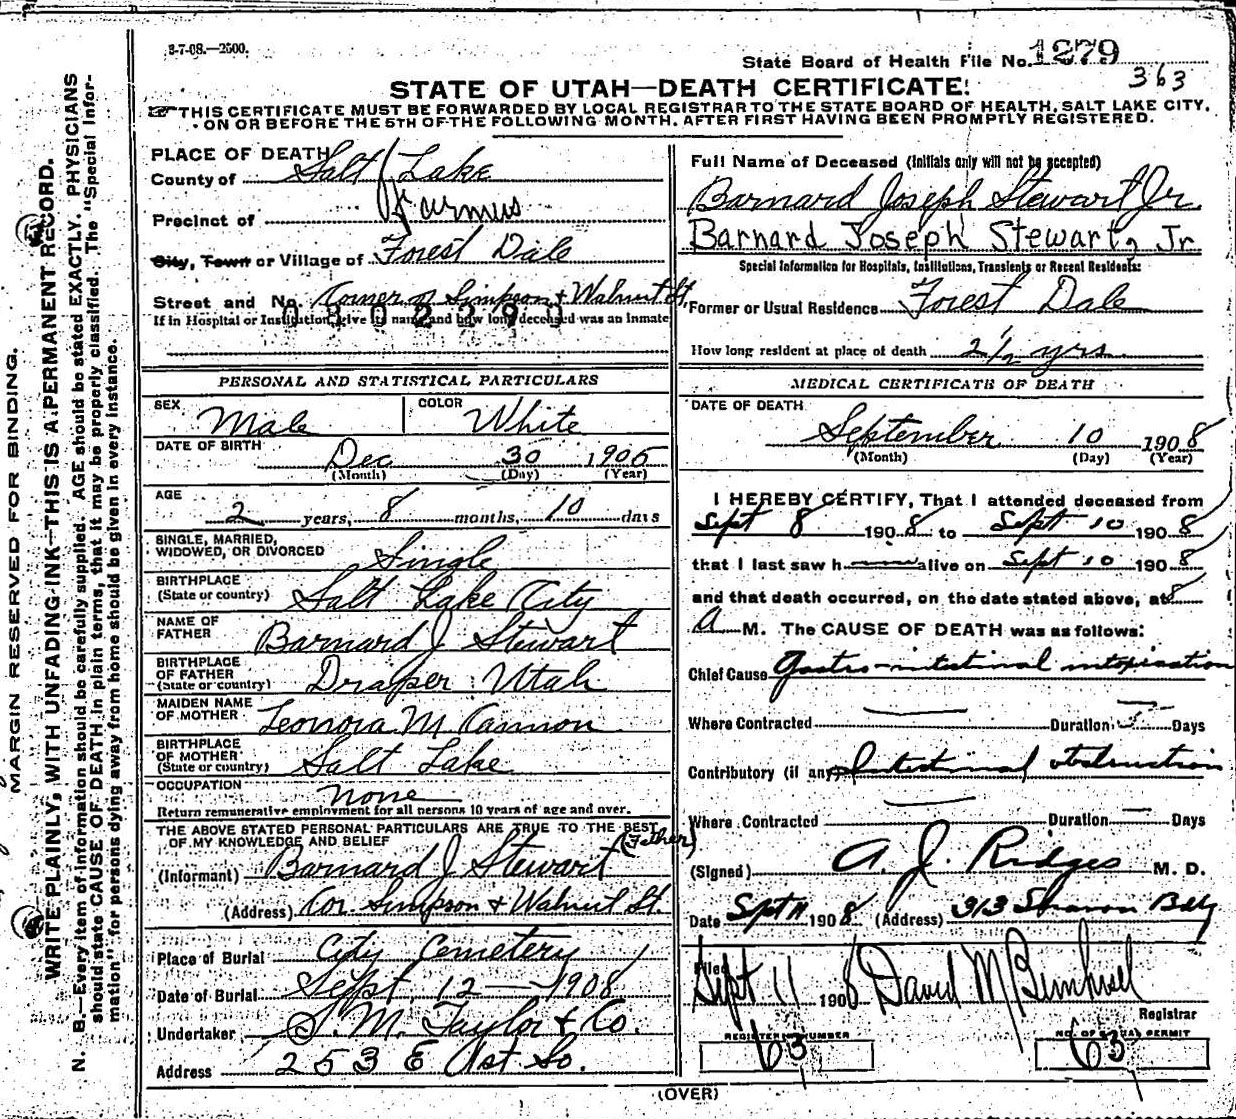 3-7-08.—2500.
State Board of Health File No. 1279
363
STATE OF UTAH—DEATH CERTIFICATE.
THIS CERTIFICATE MUST BE FORWARDED BY LOCAL REGISTRAR TO THE STATE BOARD OF HEALTH, SALT LAKE CITY,
ON OR BEFORE THE 5TH OF THE FOLLOWING MONTH, AFTER FIRST HAVING BEEN PROMPTLY REGISTERED.
MARGIN RESERVED FOR BINDING.
WRITE PLAINLY, WITH UNFADING INK—THIS IS A PERMANENT RECORD.
N. B.—Every item of information should be carefully supplied. AGE should be stated EXACTLY. PHYSICIANS
should state CAUSE OF DEATH in plain terms, that it may be properly classified. The "Special Infor-
mation" for persons dying away from home should be given in every instance.
PLACE OF DEATH
County of Salt Lake
Precinct of Farmers
City, Town or Village of Forest Dale
Street and No. Corner Simpson + Walnut St.
If in Hospital or Institution, give its name and how long deceased was an inmate
PERSONAL AND STATISTICAL PARTICULARS
SEX Male COLOR White
DATE OF BIRTH Dec 30 1905
(Month) (Day) (Year)
AGE 2 years, 8 months, 10 days
SINGLE, MARRIED,
WIDOWED, OR DIVORCED Single
BIRTHPLACE
(State or country) Salt Lake City
NAME OF
FATHER Barnard J Stewart
BIRTHPLACE
OF FATHER
(State or country) Draper Utah
MAIDEN NAME
OF MOTHER Leonora M Cannon
BIRTHPLACE
OF MOTHER
(State or country) Salt Lake
OCCUPATION none
Return remunerative employment for all persons 10 years of age and over.
THE ABOVE STATED PERSONAL PARTICULARS ARE TRUE TO THE BEST
OF MY KNOWLEDGE AND BELIEF (Father)
(Informant) Barnard J Stewart
(Address) Cor. Simpson + Walnut St.
Place of Burial City Cemetery
Date of Burial Sept. 12—1908
Undertaker S. M. Taylor & Co.
Address 253 E 1st So.
Full Name of Deceased (Initials only will not be accepted)
Barnard Joseph Stewart Jr.
Barnard Joseph Stewart, Jr
Special Information for Hospitals, Institutions, Transients or Recent Residents:
Former or Usual Residence Forest Dale
How long resident at place of death 2½ yrs.
MEDICAL CERTIFICATE OF DEATH
DATE OF DEATH
September 10 1908
(Month) (Day) (Year)
I HEREBY CERTIFY, That I attended deceased from
Sept 8 1908 to Sept 10 1908
that I last saw h alive on Sept 10 1908
and that death occurred, on the date stated above, at 8
A M. The CAUSE OF DEATH was as follows:
Chief Cause Gastro-intestinal intoxication
Where Contracted Duration 3 Days
Contributory (if any) Intestinal obstruction
Where Contracted Duration Days
(Signed) A. J. Ridges M. D.
Date Sept 11 1908 (Address) 313 Sharon Bldg
Filed Sept 11 1908 David M
Registrar
REGISTERED NUMBER
63
NO. OF BURIAL PERMIT
63
(OVER)